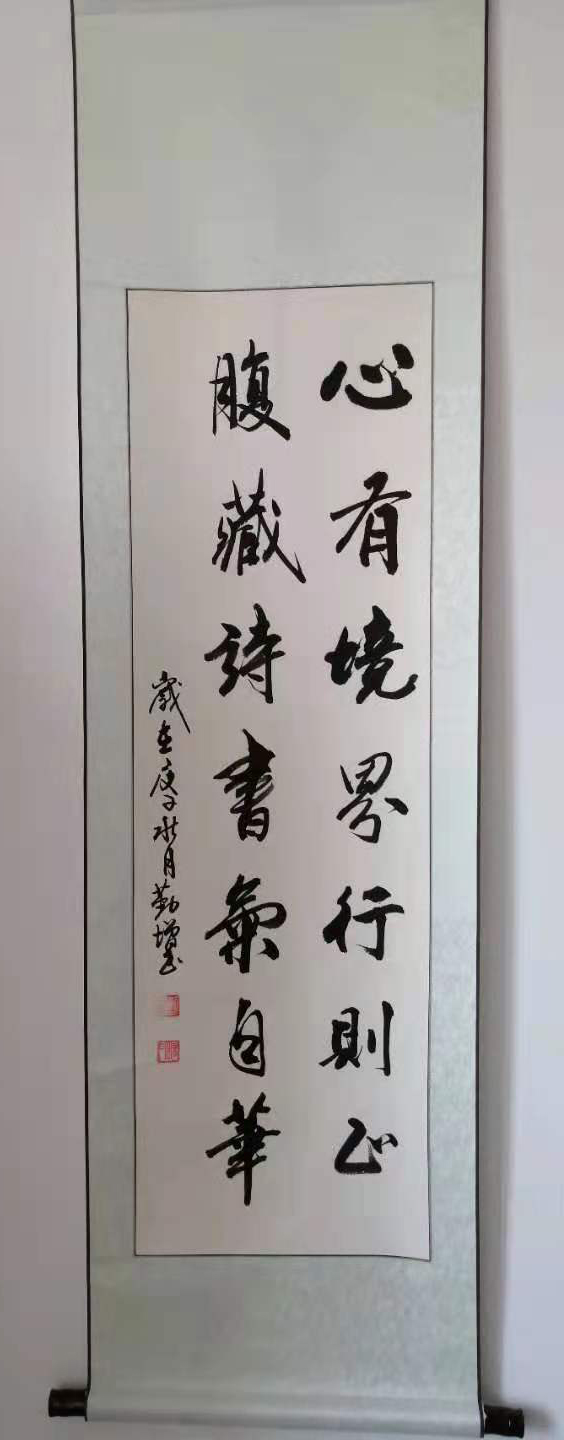 心有境界行則正
腹藏詩書氣自華
歲在庚子秋月勤增書